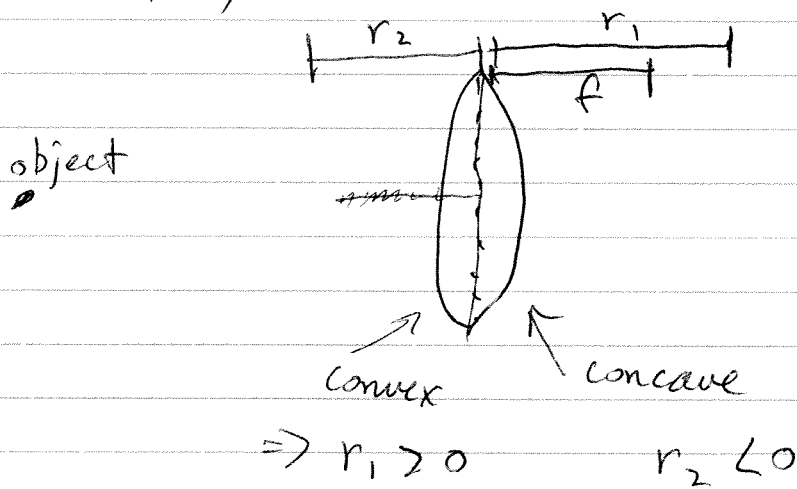 r₂ r₁
f
object
convex concave
=> r₁ > 0 r₂ < 0